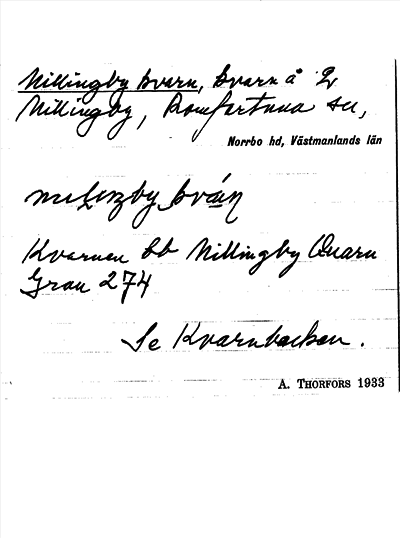 Nillingby kvarn, kvarn å 2
Nillingby, Romfartuna sn,
Norrbo hd, Västmanlands län
Kvarnen bb Nillingby Quarn
Grau 274
Se Kvarnbacken.
A. THORFORS 1933